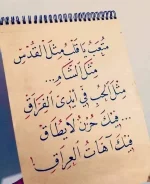 مُتعِبٌ يا قلبُ مثلَ القُدسِ
مِثلَ الشَّامِ...
مِثلَ الحُبِّ في أيدي الفراقِ
...فيكَ حزنٌ لا يُطاقُ
فيكَ آهاتُ العراقِ!